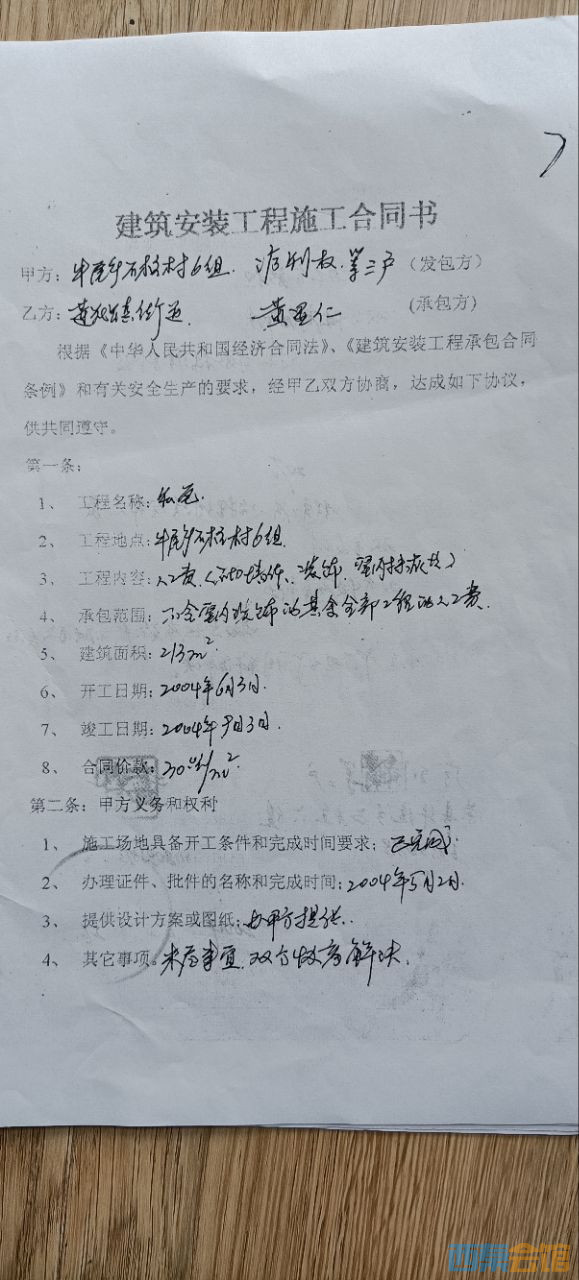 建筑安装工程施工合同书
甲方：牛尾乡石柱村6组. 等三户（发包方）
乙方：街道. 黄星仁 (承包方)
根据《中华人民共和国经济合同法》、《建筑安装工程承包合同
条例》和有关安全生产的要求，经甲乙双方协商，达成如下协议，
供共同遵守。
第一条：
1、 工程名称：私宅.
2、 工程地点：牛尾乡石柱村6组.
3、 工程内容：人工费
4、 承包范围：不含室内装饰的其余全部工程的人工费.
5、 建筑面积：213m²
6、 开工日期：2004年6月3日.
7、 竣工日期：2004年9月3日.
8、 合同价款：30元/m²
第二条：甲方义务和权利
1、 施工场地具备开工条件和完成时间要求；已完成
2、 办理证件、批件的名称和完成时间；2004年5月2日.
3、 提供设计方案或图纸；由甲方提供.
4、 其它事项。未尽事宜.双方协商解决.
西祠会馆